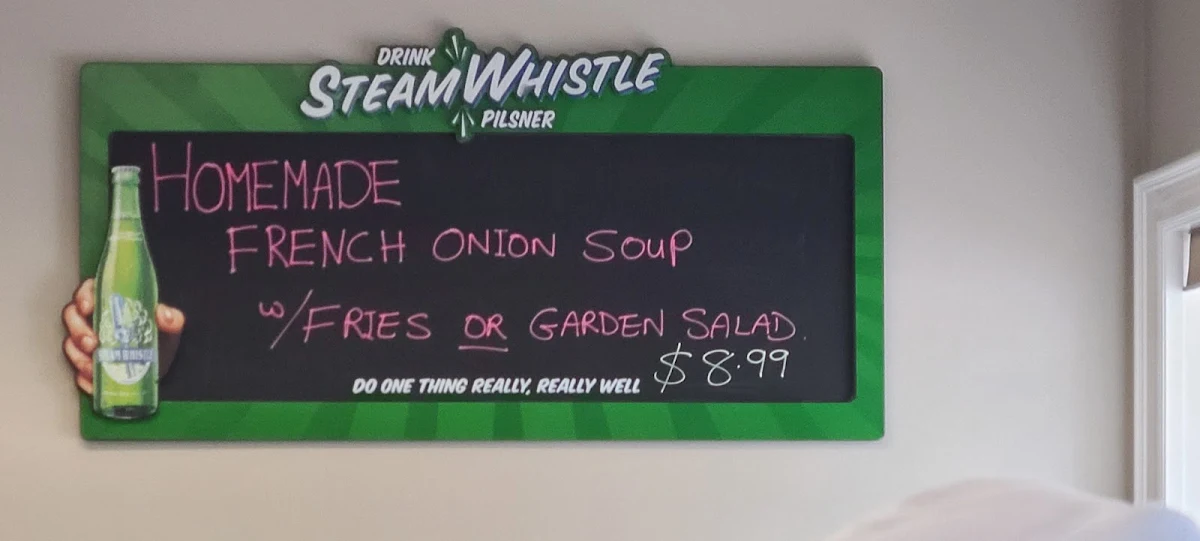 DRINK
STEAMWHISTLE
PILSNER
HOMEMADE
FRENCH ONION SOUP
w/FRIES OR GARDEN SALAD.
$8.99
DO ONE THING REALLY, REALLY WELL
STEAM WHISTLE